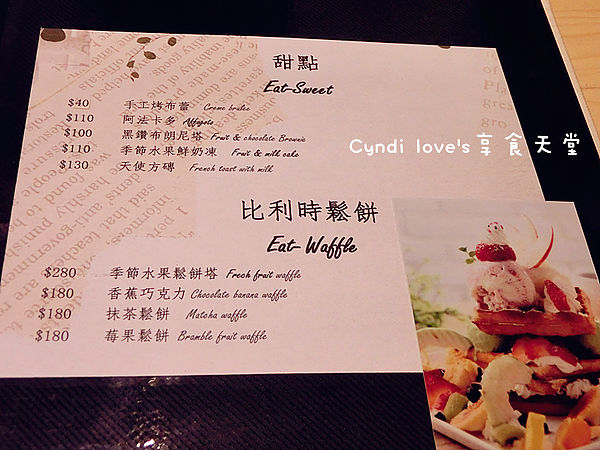 甜點
Eat-Sweet
$40 手工烤布蕾 Creme brulee
$110 阿法卡多 Affogato
$100 黑鑽布朗尼塔 Fruit & chocolate Brownie
$110 季節水果鮮奶凍 Fruit & milk cake
$130 天使方磚 French toast with milk
Cyndi love's 享食天堂
比利時鬆餅
Eat-Waffle
$280 季節水果鬆餅塔 Frech fruit waffle
$180 香蕉巧克力 Chocolate banana waffle
$180 抹茶鬆餅 Matcha waffle
$180 莓果鬆餅 Bramble fruit waffle